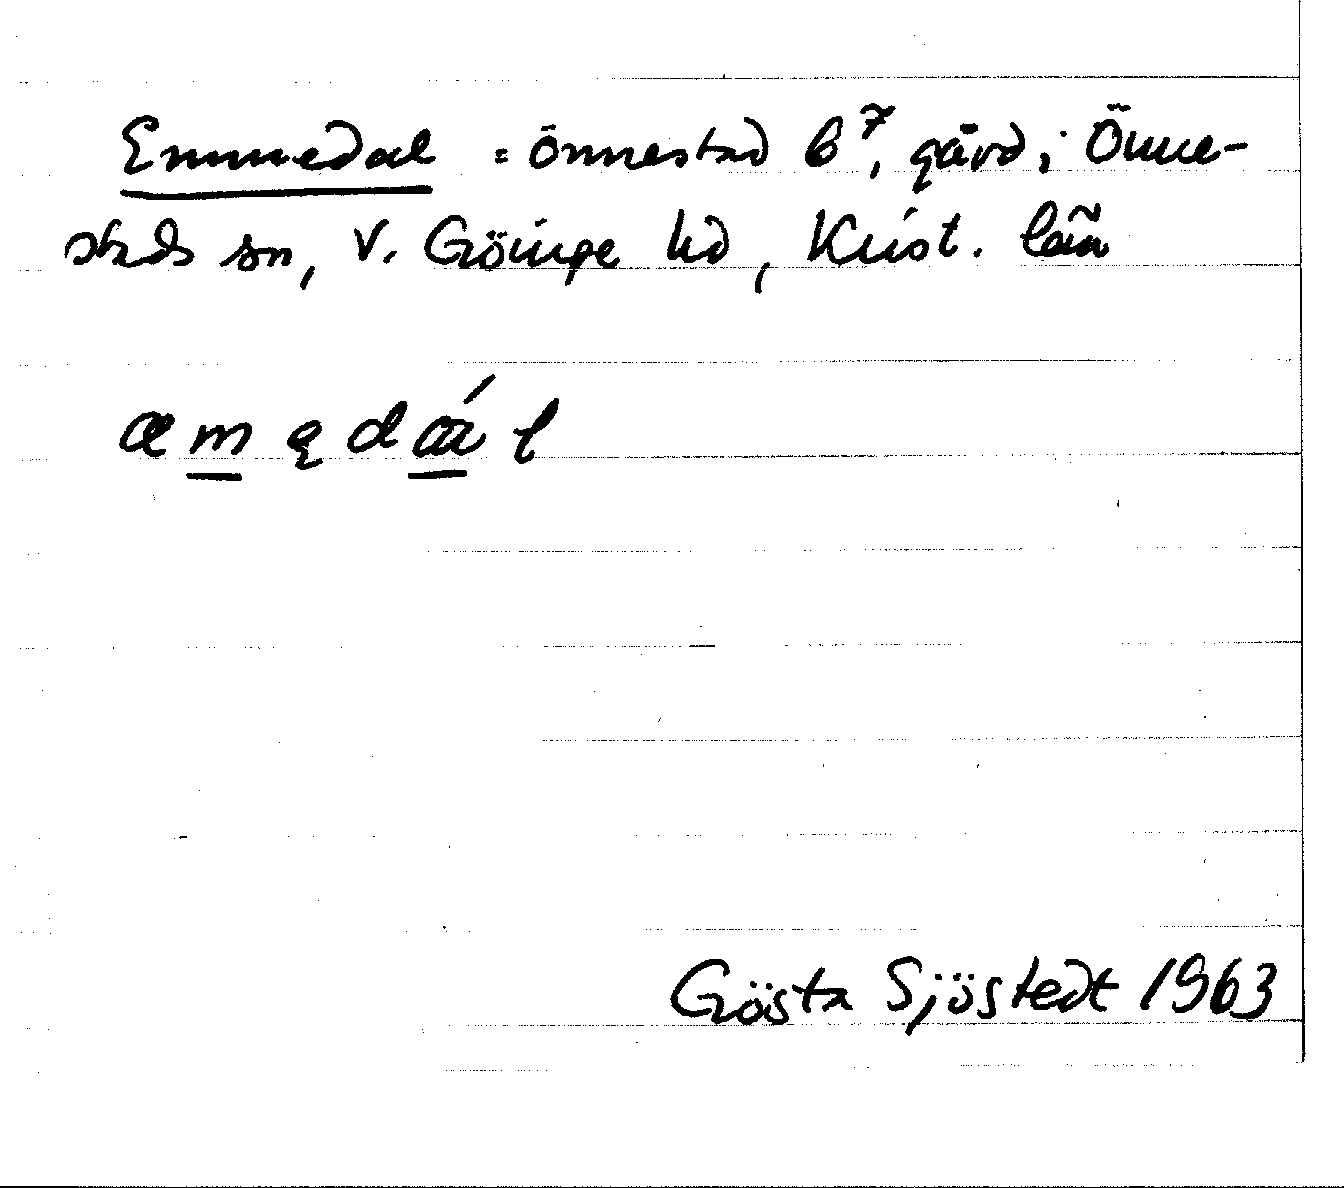 Emmedal = Önnestad 6⁷, gård i Önne-
stads sn, V. Göinge hd, Krist. län
æmədɑ́l
Gösta Sjöstedt 1963